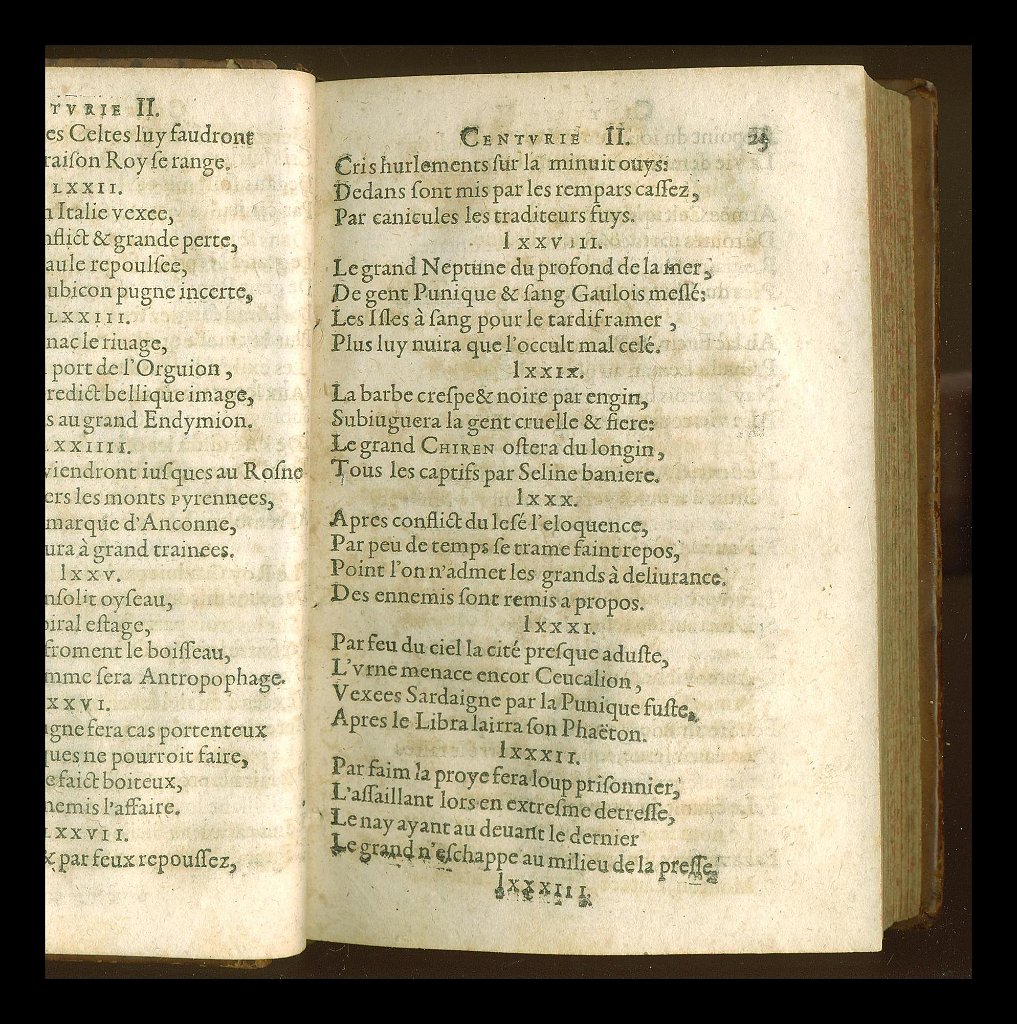 TVRIE II.
es Celtes luy faudront
raiſon Roy ſe range.
LXXII.
Italie vexee,
nflict & grande perte,
aule repoulſee,
ubicon pugne incerte,
LXXIII.
nac le riuage,
port de l'Orguion,
redict bellique image,
s au grand Endymion.
LXXIIII.
viendront iuſques au Roſne
ers les monts pyrennees,
marque d'Anconne,
ura à grand trainees.
lxxv.
nſolit oyſeau,
piral eſtage,
froment le boiſſeau,
mme ſera Antropophage.
XXVI.
gne fera cas portenteux
ques ne pourroit faire,
e faict boiteux,
nemis l'affaire.
LXXVII.
x par feux repouſſez,
CENTVRIE II. 25
Cris hurlements ſur la minuit ouys:
Dedans ſont mis par les rempars caſſez,
Par canicules les traditeurs fuys.
lxxviii.
Le grand Neptune du profond de la mer,
De gent Punique & ſang Gaulois meſlé:
Les Iſles à ſang pour le tardif ramer,
Plus luy nuira que l'occult mal celé.
lxxix.
La barbe creſpe & noire par engin,
Subiuguera la gent cruelle & fiere:
Le grand CHIREN oſtera du longin,
Tous les captifs par Seline baniere.
lxxx.
Apres conflict du leſé l'eloquence,
Par peu de temps ſe trame faint repos,
Point l'on n'admet les grands à deliurance.
Des ennemis ſont remis a propos.
lxxxi.
Par feu du ciel la cité preſque aduſte,
L'vrne menace encor Ceucalion,
Vexees Sardaigne par la Punique fuſte,
Apres le Libra lairra ſon Phaëton.
lxxxii.
Par faim la proye fera loup priſonnier,
L'aſſaillant lors en extreſme detreſſe,
Le nay ayant au deuant le dernier
Le grand n'eſchappe au milieu de la preſſe.
lxxxiii.